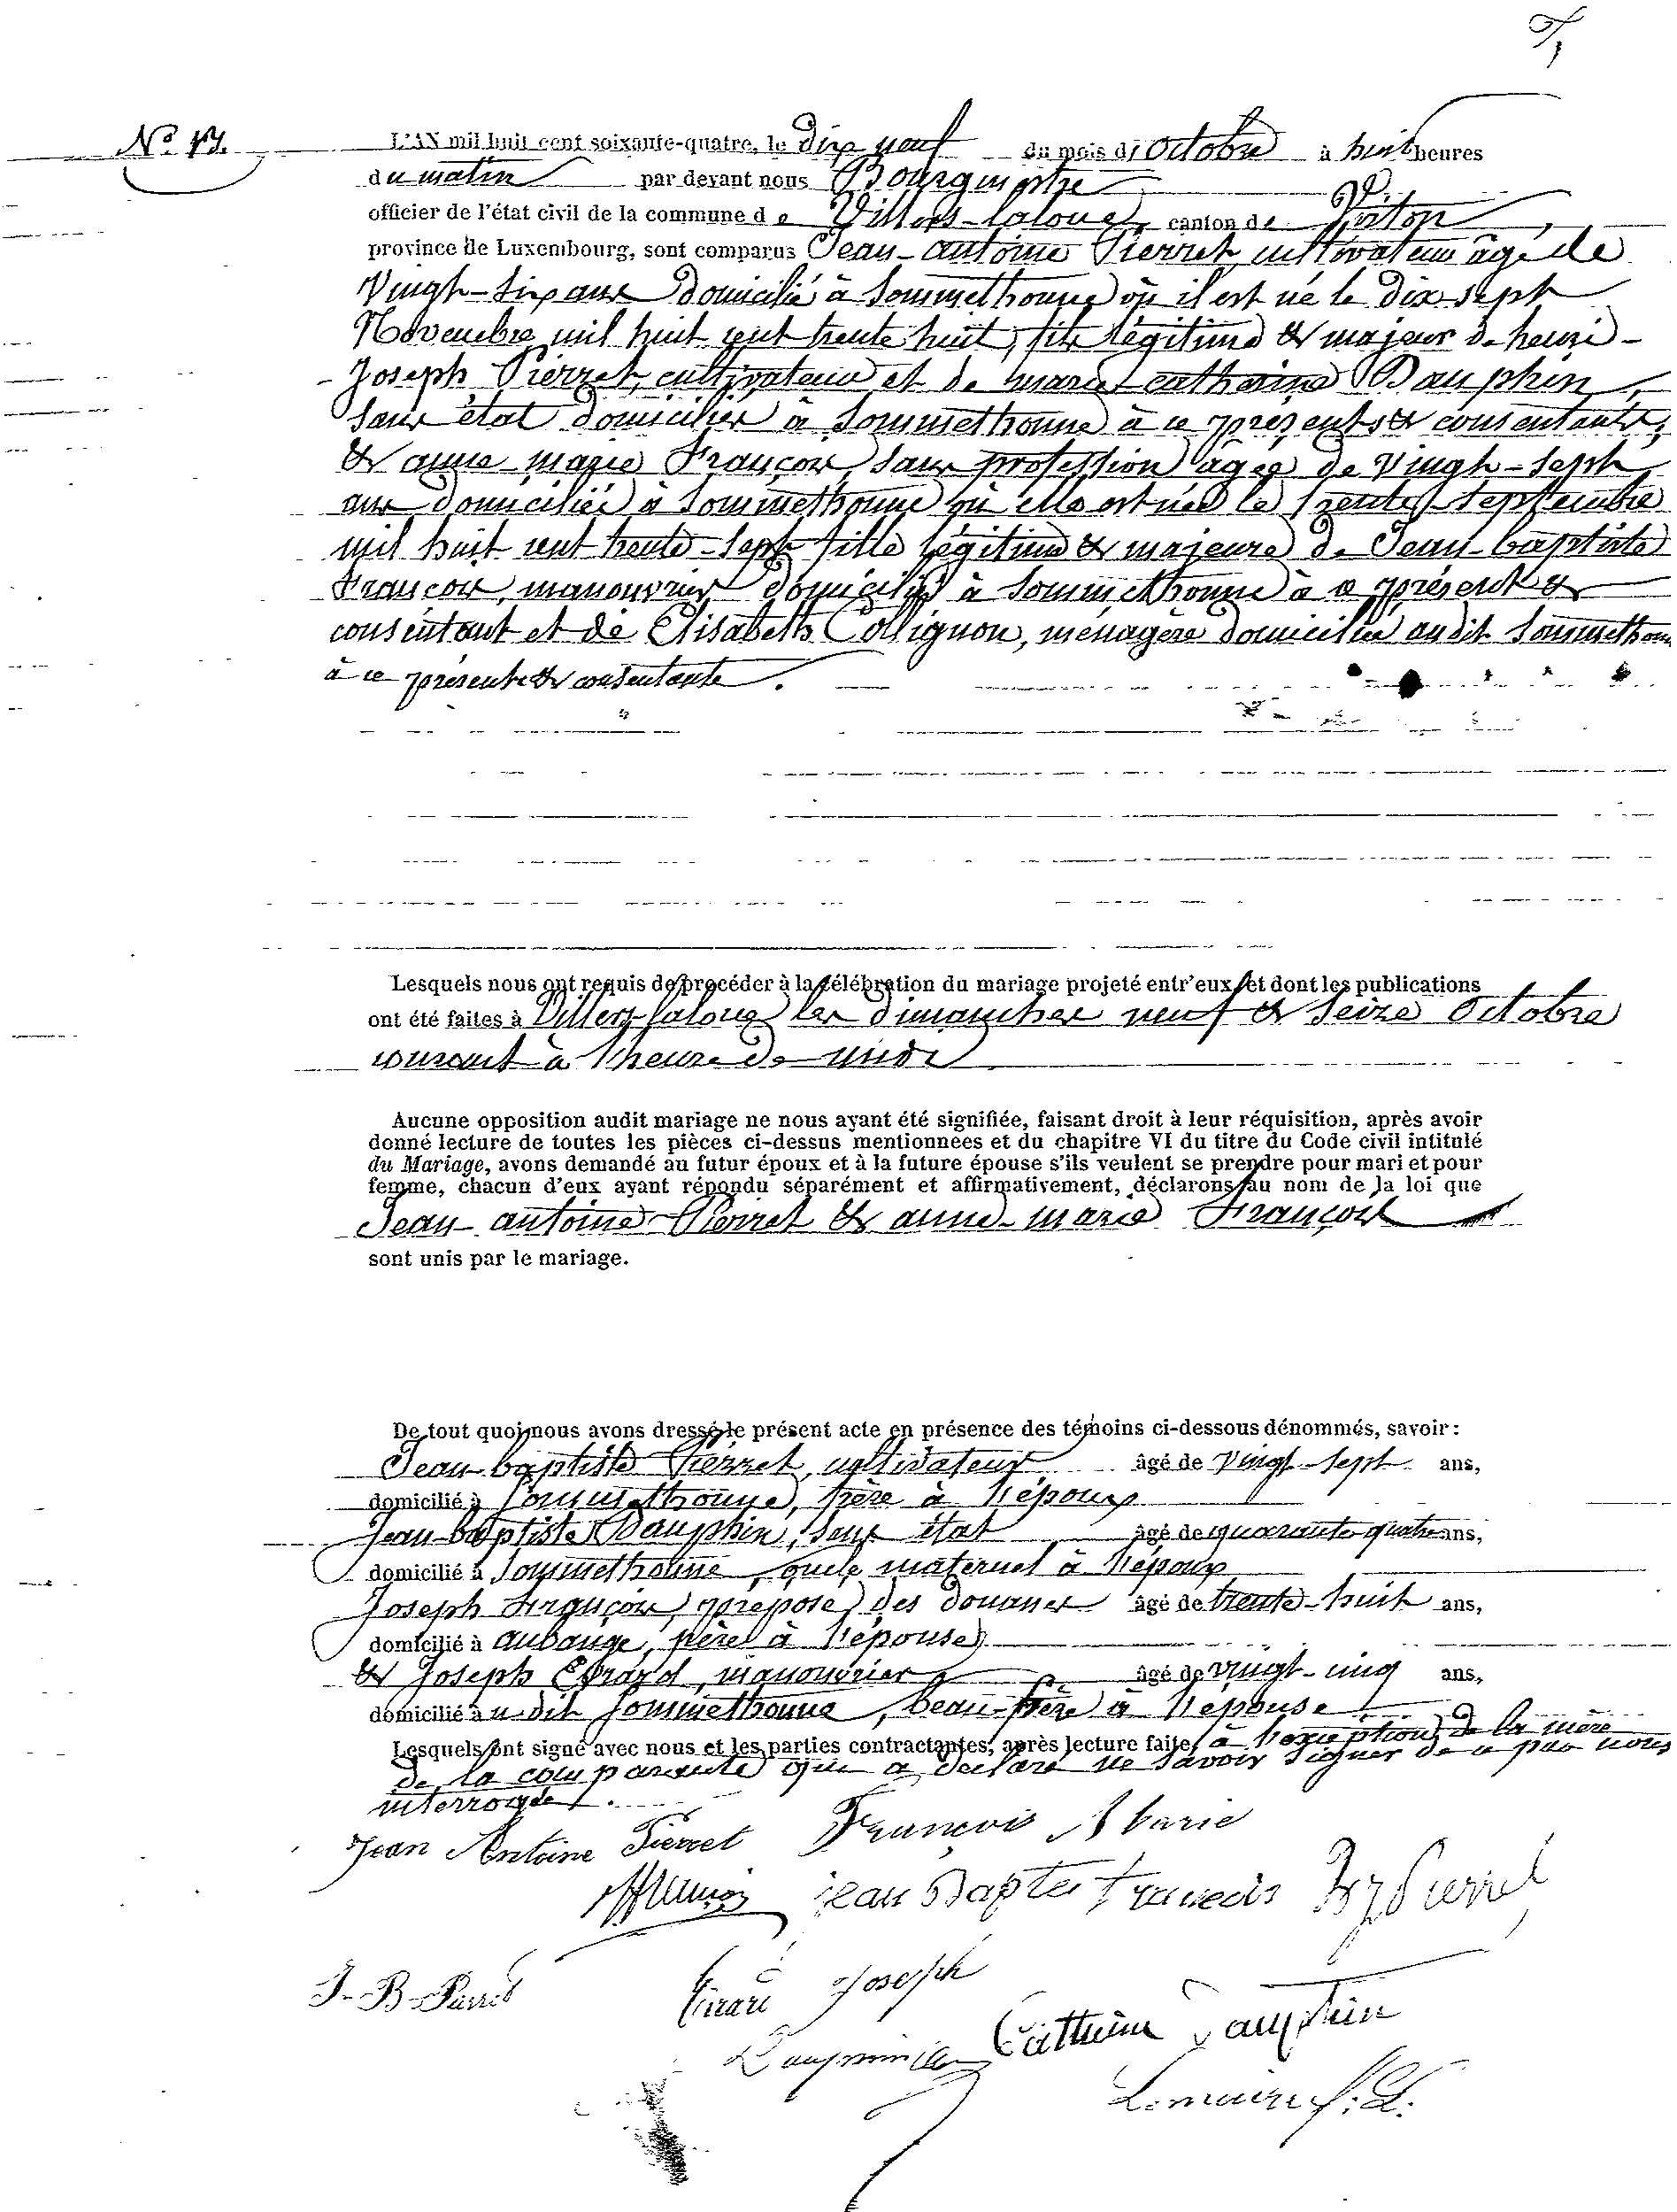 L'AN mil huit cent soixante-quatre, le dix neuf du mois d'octobre à huit heures
N°
du matin par devant nous Bourgmestre
officier de l'état civil de la commune de Villers-laloue, canton de Virton,
province de Luxembourg, sont comparus Jean-antoine Pierret cultivateur âgé de
Vingt-six ans domicilié à Sommethonne où il est né le dix-sept
Novembre mil huit cent trente huit, fils légitime & majeur de henri-
Joseph Pierret, cultivateur et de marie catherine Dauphin,
sans état domiciliés à Sommethonne à ce présents & consentants,
& anne marie François, sans profession agée de Vingt-sept
ans domiciliée à Sommethonne où elle est née le trente septembre
mil huit cent trente-sept fille légitime & majeure de Jean-baptiste
François, manouvrier domicilié à Sommethonne à ce présent &
consentant et de Elisabeth Collignon, ménagère domiciliée au dit Sommethonne
à ce présente & consentante.
Lesquels nous ont requis de procéder à la célébration du mariage projeté entr'eux et dont les publications
ont été faites à Villers-laloue les dimanches neuf & seize octobre
courant à l'heure de midi
Aucune opposition audit mariage ne nous ayant été signifiée, faisant droit à leur réquisition, après avoir
donné lecture de toutes les pièces ci-dessus mentionnées et du chapitre VI du titre du Code civil intitulé
du Mariage, avons demandé au futur époux et à la future épouse s'ils veulent se prendre pour mari et pour
femme, chacun d'eux ayant répondu séparément et affirmativement, déclarons au nom de la loi que
Jean antoine Pierret & anne-marie François
sont unis par le mariage.
De tout quoi nous avons dressé le présent acte en présence des témoins ci-dessous dénommés, savoir:
Jean baptiste Pierret, cultivateur âgé de vingt-sept ans,
domicilié à Sommethonne, frère à l'époux
Jean baptiste Dauphin, sans état âgé de quarante-quatre ans,
domicilié à Sommethonne, oncle maternel à l'époux
Joseph François, préposé des douanes âgé de trente-huit ans,
domicilié à aubange, frère à l'épouse
& Joseph Girard, manouvrier âgé de vingt-cinq ans,
domicilié au dit Sommethonne, beau-frère à l'épouse
Lesquels ont signé avec nous et les parties contractantes, après lecture faite, à l'exception de la mère
de la comparante qui a déclaré ne savoir signer de ce par nous
interrogée.
Jean Antoine Pierret François Marie
jean Baptis francois hj Pierret
J-B-Pierret Girard Joseph
Dauphin Catherine Dauphin
Lemaire